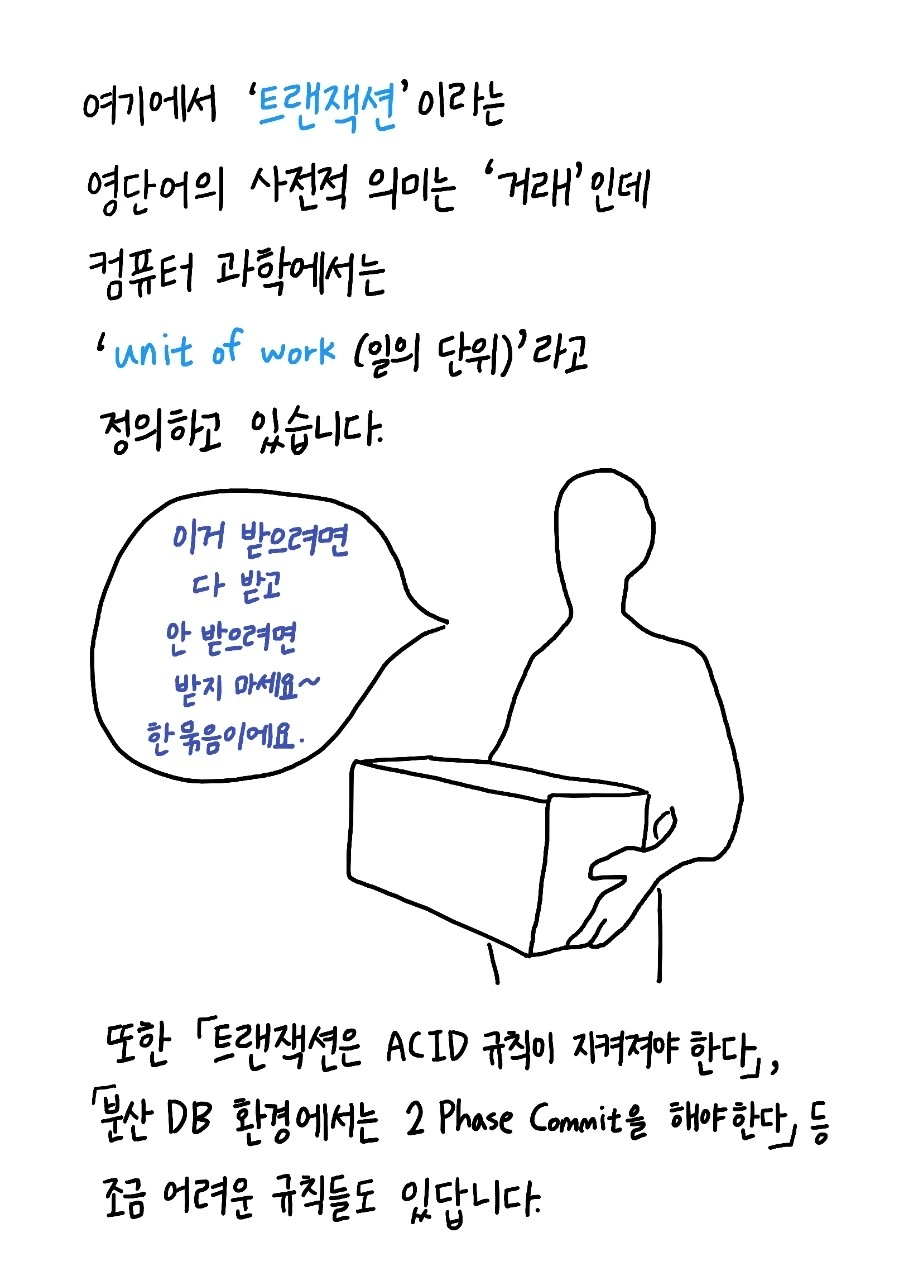 여기에서 ‘트랜잭션’이라는
영단어의 사전적 의미는 ‘거래’인데
컴퓨터 과학에서는
‘unit of work (일의 단위)’라고
정의하고 있습니다.
이거 받으려면
다 받고
안 받으려면
받지 마세요~
한 묶음이에요.
또한 「트랜잭션은 ACID 규칙이 지켜져야 한다」,
「분산 DB 환경에서는 2 Phase Commit을 해야한다」 등
조금 어려운 규칙들도 있답니다.